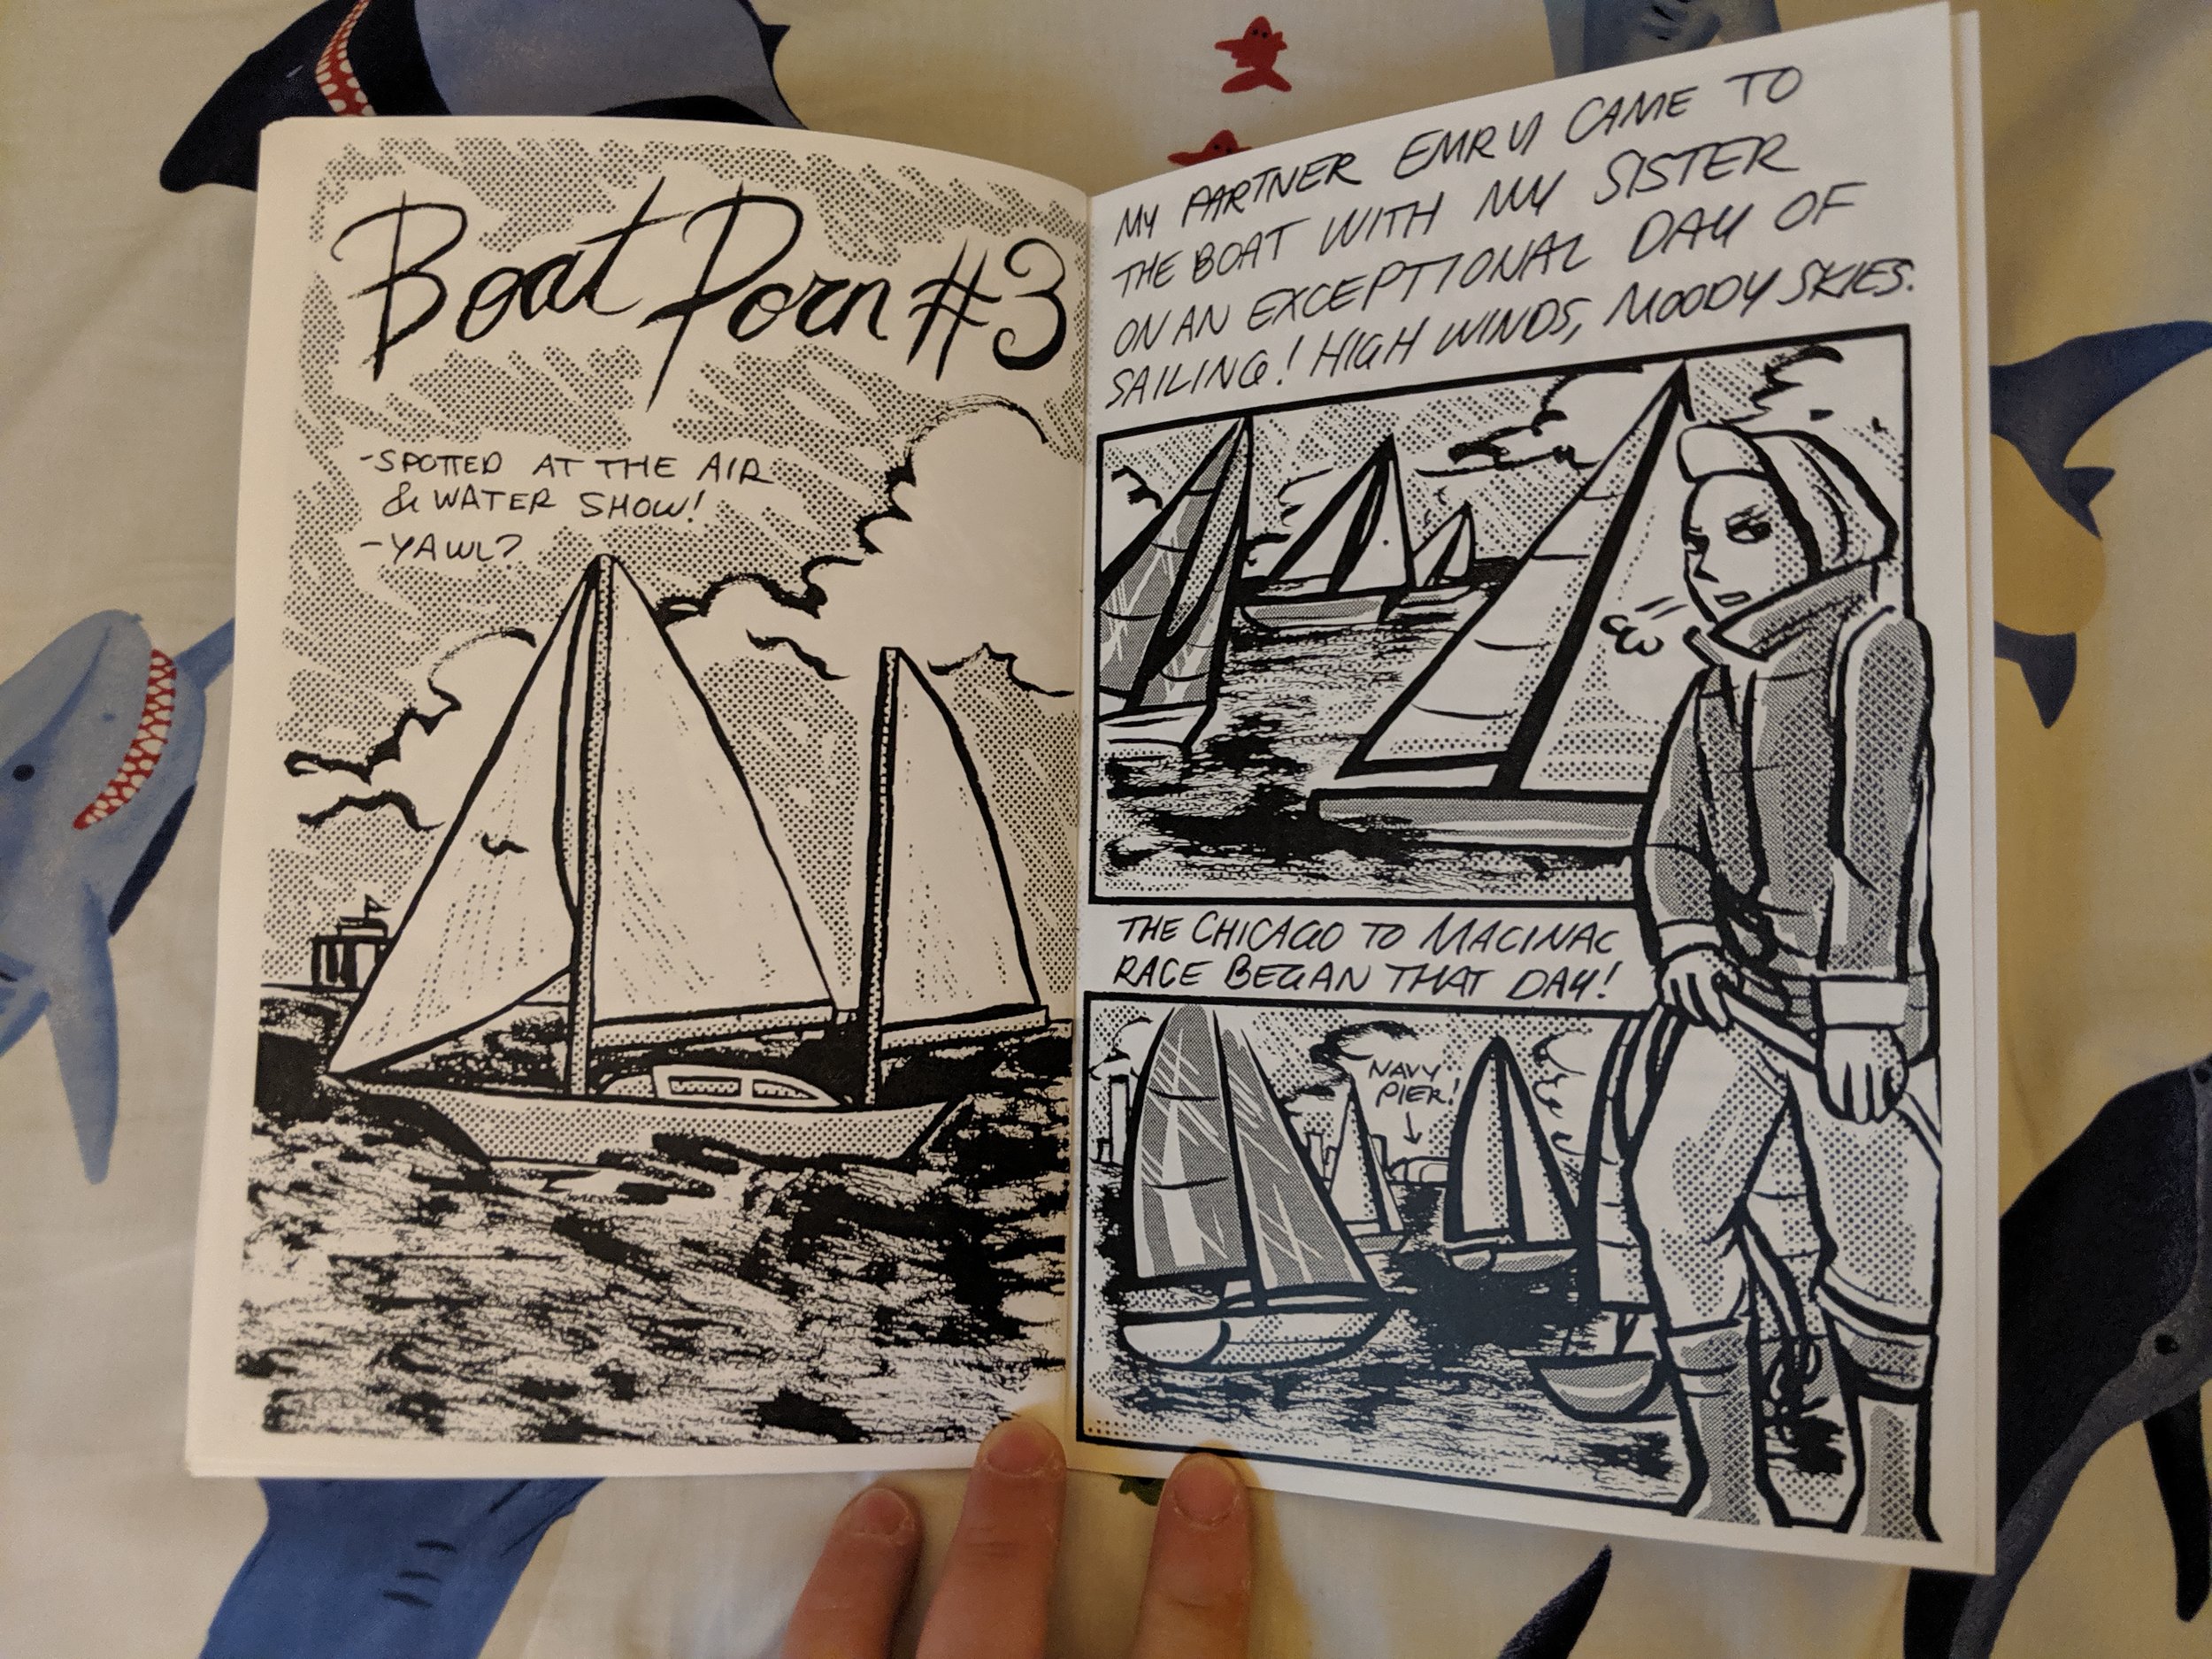 Boat Porn #3
-SPOTTED AT THE AIR
& WATER SHOW!
-YAWL?
MY PARTNER EMRYS CAME TO
THE BOAT WITH MY SISTER
ON AN EXCEPTIONAL DAY OF
SAILING! HIGH WINDS, MOODY SKIES.
THE CHICAGO TO MACINAC
RACE BEGAN THAT DAY!
NAVY
PIER!